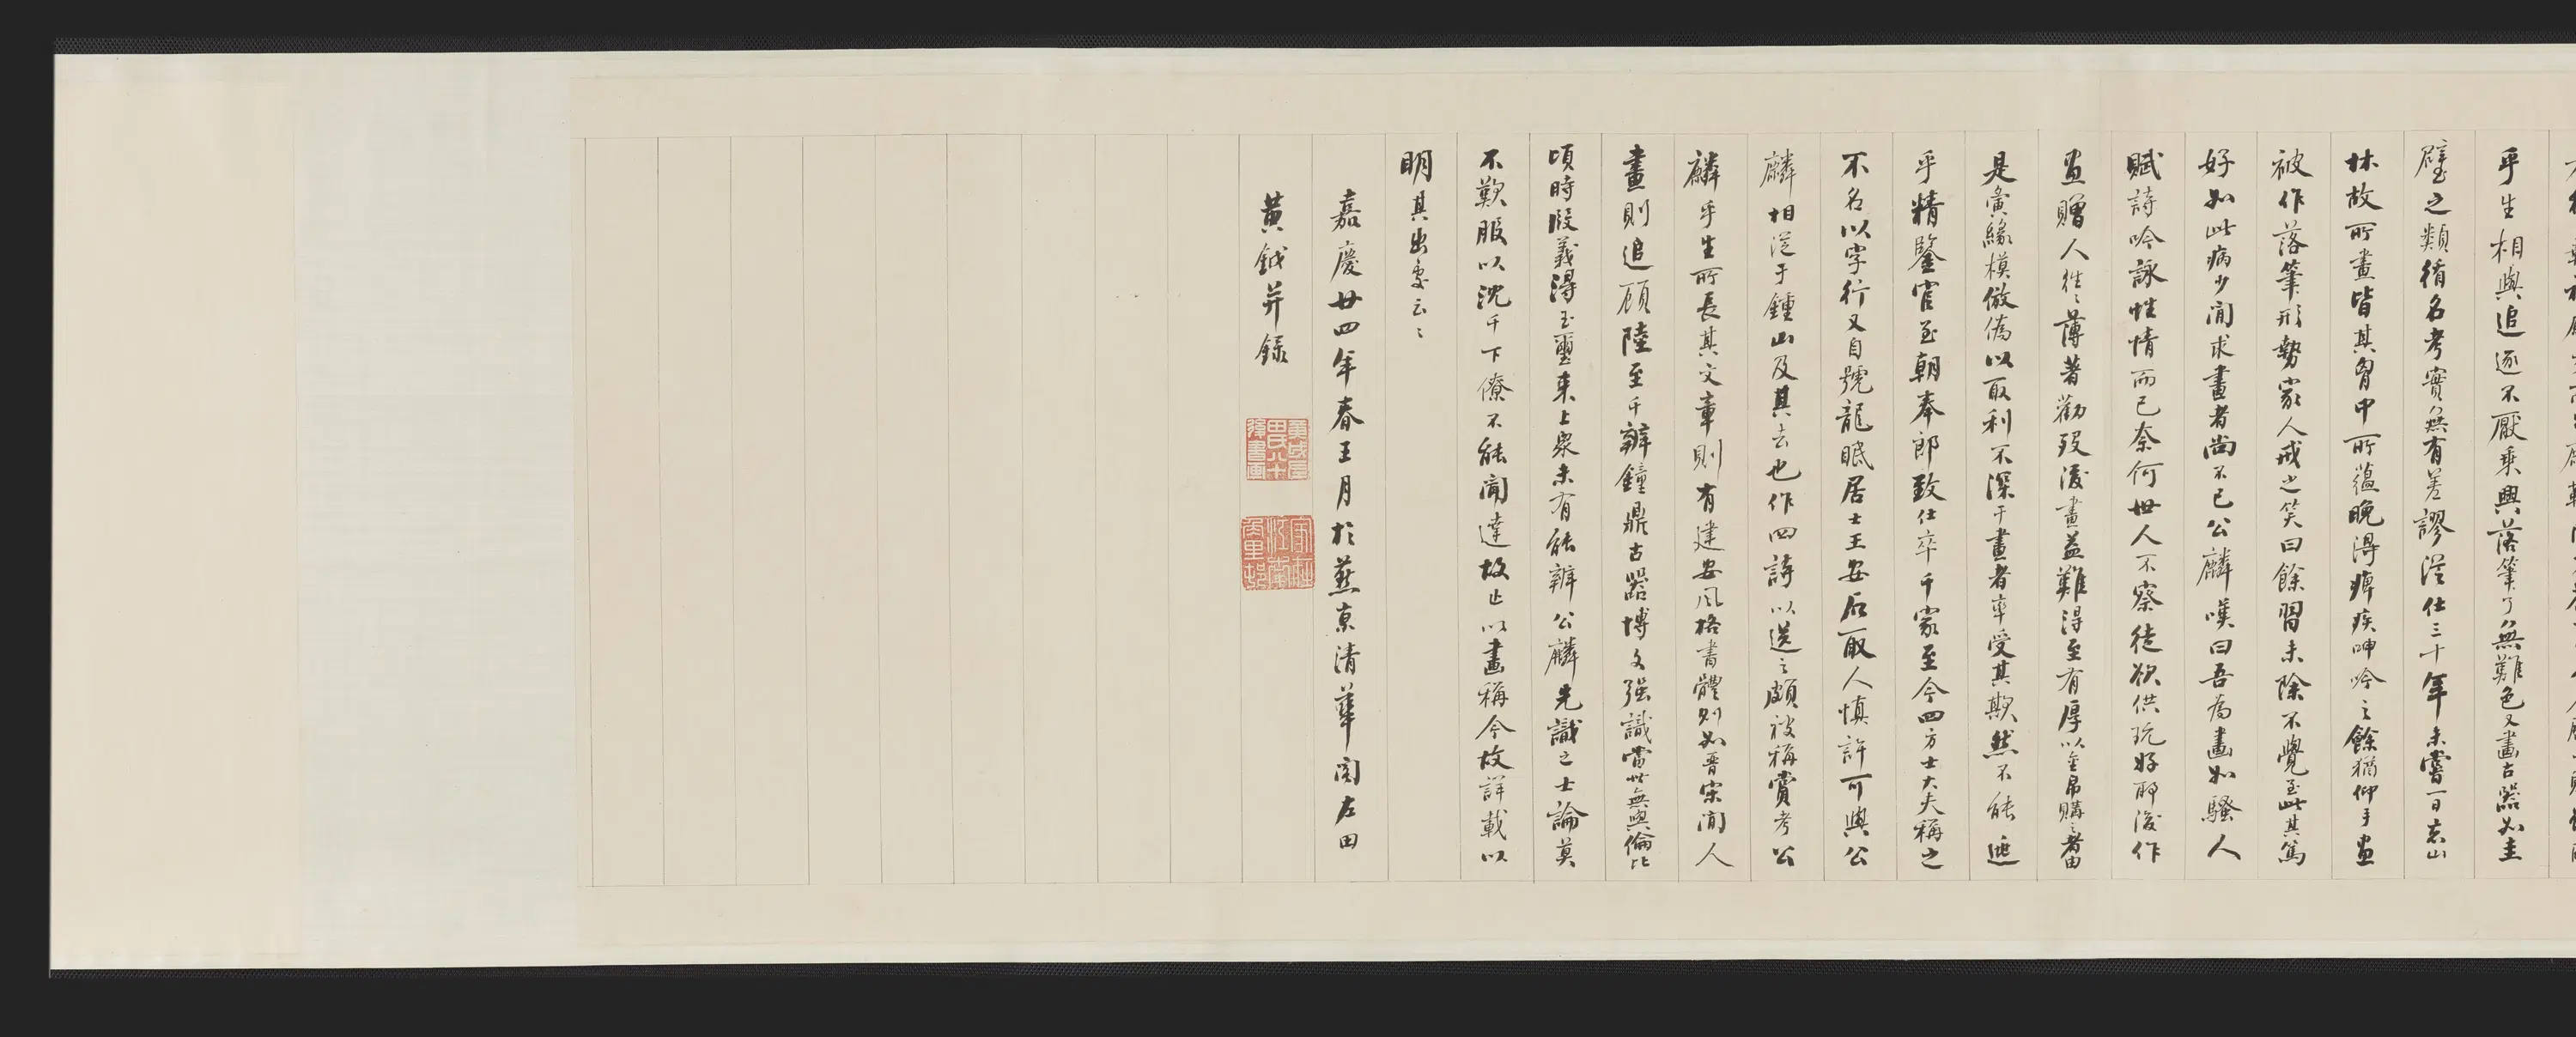 乎生相與追逐不厭乗興落筆了無難色又畫古器如圭
璧之類循名考實無有差謬從仕三十年未嘗一日忘山
林故所畫皆其胷中所蘊晚得痺疾呻吟之餘猶仰手畫
被作落筆形勢家人戒之笑曰餘習未除不覺至此其篤
好如此病少閒求畫者尚不已公麟嘆曰吾為畫如騷人
賦詩吟詠性情而已奈何世人不察徒欲供玩好耶後作
畫贈人徃〻薄著勸
是夤緣模倣偽以取利不深于畫者率受其欺然不能逃
乎精鑒官至朝奉郎致仕卒于家至今四方士大夫稱之
不名以字行又自號龍眠居士王安石取人慎許可與公
麟相從于鍾山及其去也作四詩以送之頗被稱賞考公
麟乎生所長其文章則有建安風格書體則如晋宋間人
畫則追顧陸至于辨鐘鼎古器博文强識當世無與倫比
頃時叚義得玉璽来上衆未有能辨公麟先識之士論莫
不歎服以沈于下僚不能聞達故止以畫稱今故詳載以
明其出處云〻
嘉慶廿四年春王月於燕京清華閣左田
黃鉞并録